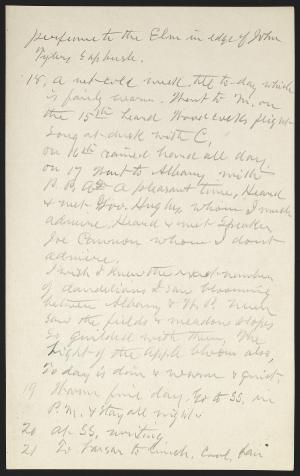 perfume to the Elm in edge of John
Tylers Sapbush.
18, A wet cold week, till to-day which
is fairly warm. Went to M. on
the 15th heard Woodcocks flight
song at dusk with C,
on 16th rained hard all day.
on 17 Went to Albany with
P. P. A. A pleasant time, Heard
& met Gov. Hughes, whom I much
admire, Heard & met Speaker
Joe Cannon whom I dont
admire.
I wish I knew the exact number
of dandelions I saw blooming
between Albany & W. P. Never
saw the fields & meadow slopes
so guilded with them. The
height of the apple bloom also,
To day is dim & warm & quiet.
19 Warm fine day. Go to SS. in
P.M. & stay all night.
20 At SS, writing
21 To Vassar to lunch. Cool, fair